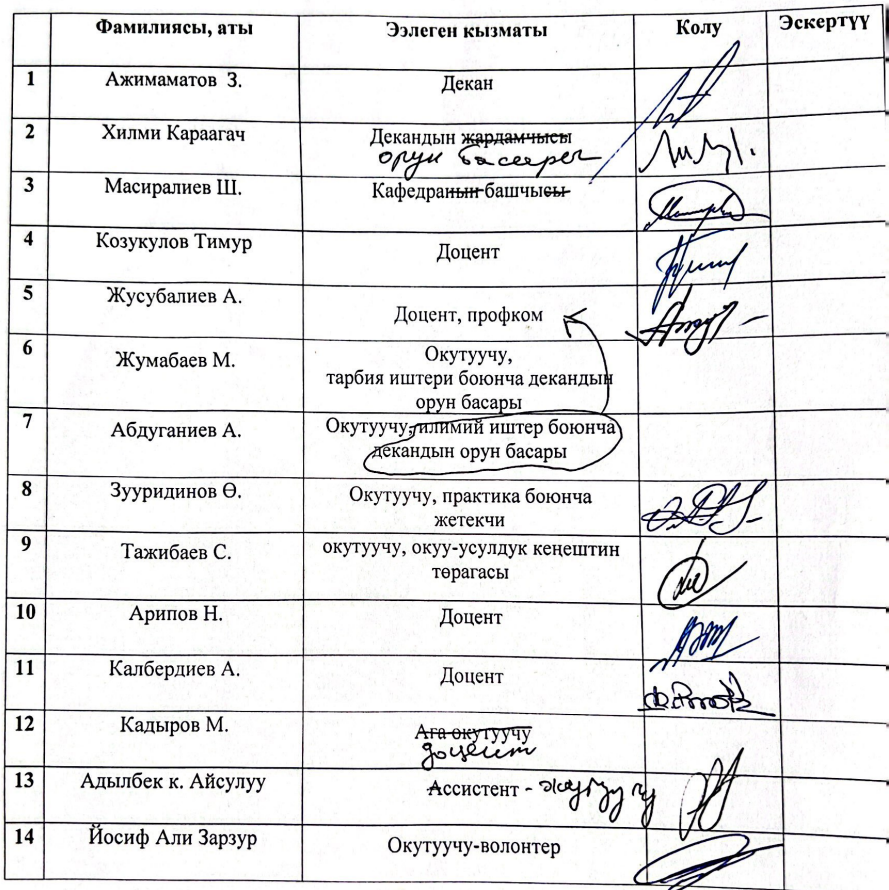 Фамилиясы, аты Ээлеген кызматы Колу Эскертүү
1 Ажимаматов З. Декан
2 Хилми Караагач Декандын жардамчысы
орун басары
3 Масиралиев Ш. Кафедранын башчысы
4 Козукулов Тимур Доцент
5 Жусубалиев А. Доцент, профком
6 Жумабаев М. Окутуучу,
тарбия иштери боюнча декандын
орун басары
7 Абдуганиев А. Окутуучу, илимий иштер боюнча
декандын орун басары
8 Зууридинов Ө. Окутуучу, практика боюнча
жетекчи
9 Тажибаев С. окутуучу, окуу-усулдук кеңештин
төрагасы
10 Арипов Н. Доцент
11 Калбердиев А. Доцент
12 Кадыров М. Ага окутуучу
доцент
13 Адылбек к. Айсулуу Ассистент -
14 Йосиф Али Зарзур Окутуучу-волонтер